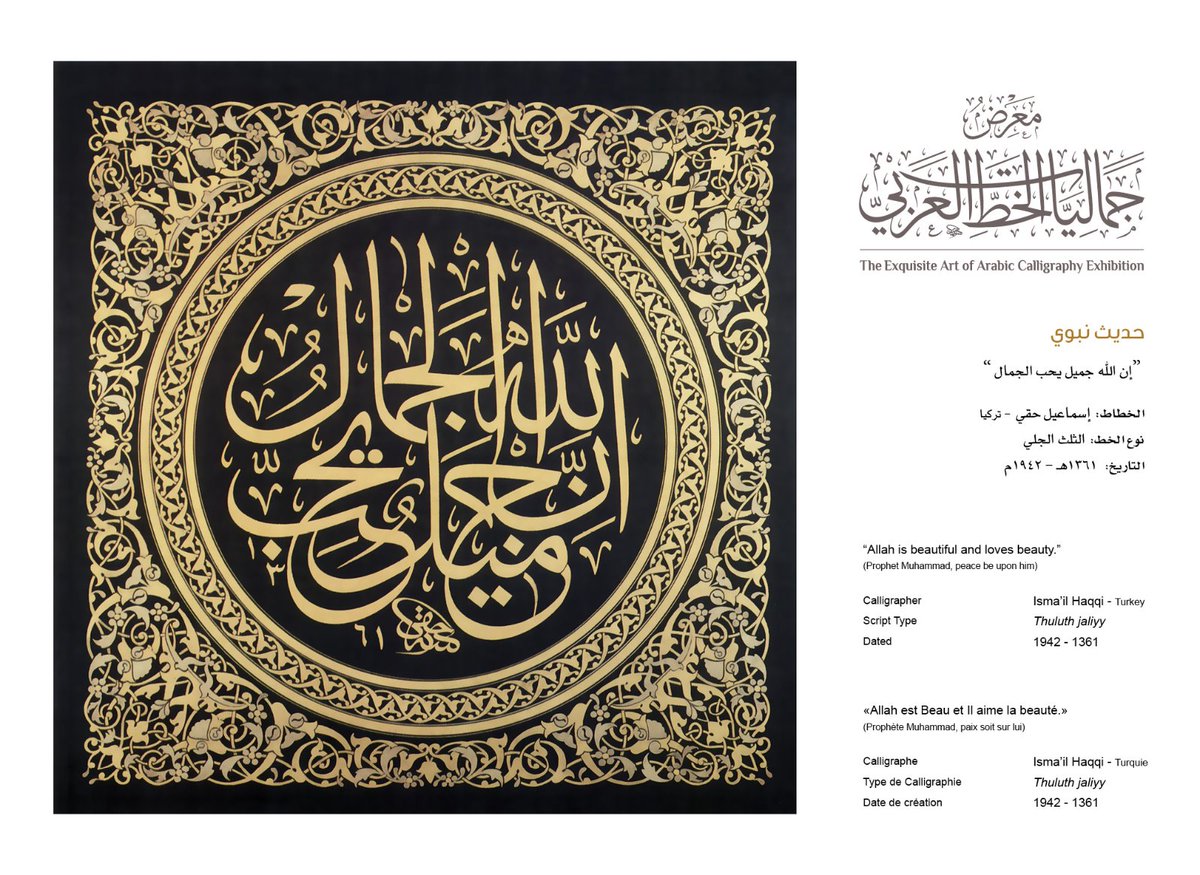 إن الله جميل يحب الجمال
١٣
٦١
حقي
معرض
جماليات الخط العربي
The Exquisite Art of Arabic Calligraphy Exhibition
حديث نبوي
”إن الله جميل يحب الجمال“
الخطاط: إسماعيل حقي - تركيا
نوع الخط: الثلث الجلي
التاريخ: ١٣٦١هـ - ١٩٤٢م
“Allah is beautiful and loves beauty.”
(Prophet Muhammad, peace be upon him)
Calligrapher Isma’il Haqqi - Turkey
Script Type Thuluth jaliyy
Dated 1942 - 1361
«Allah est Beau et Il aime la beauté.»
(Prophète Muhammad, paix soit sur lui)
Calligraphe Isma’il Haqqi - Turquie
Type de Calligraphie Thuluth jaliyy
Date de création 1942 - 1361